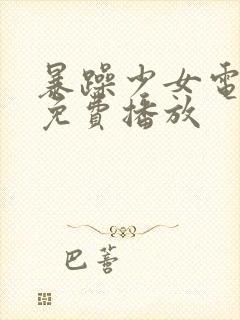 暴躁少女電
免費播放
巴蕾